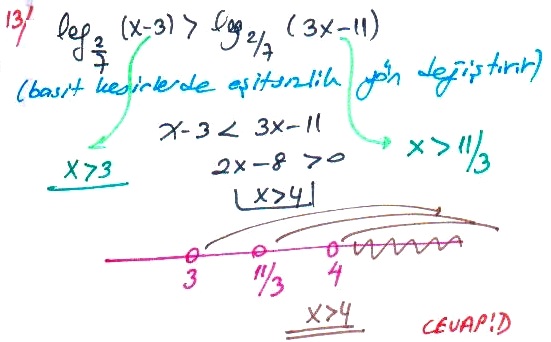 13/ log_{2/7} (x-3) > log_{2/7} (3x-11)
(basit kesirlerde eşitsizlik yön değiştirir)
x-3 < 3x-11
x>3 2x-8 >0 x > 11/3
x>4
3 11/3 4
x>4 CEVAP:D